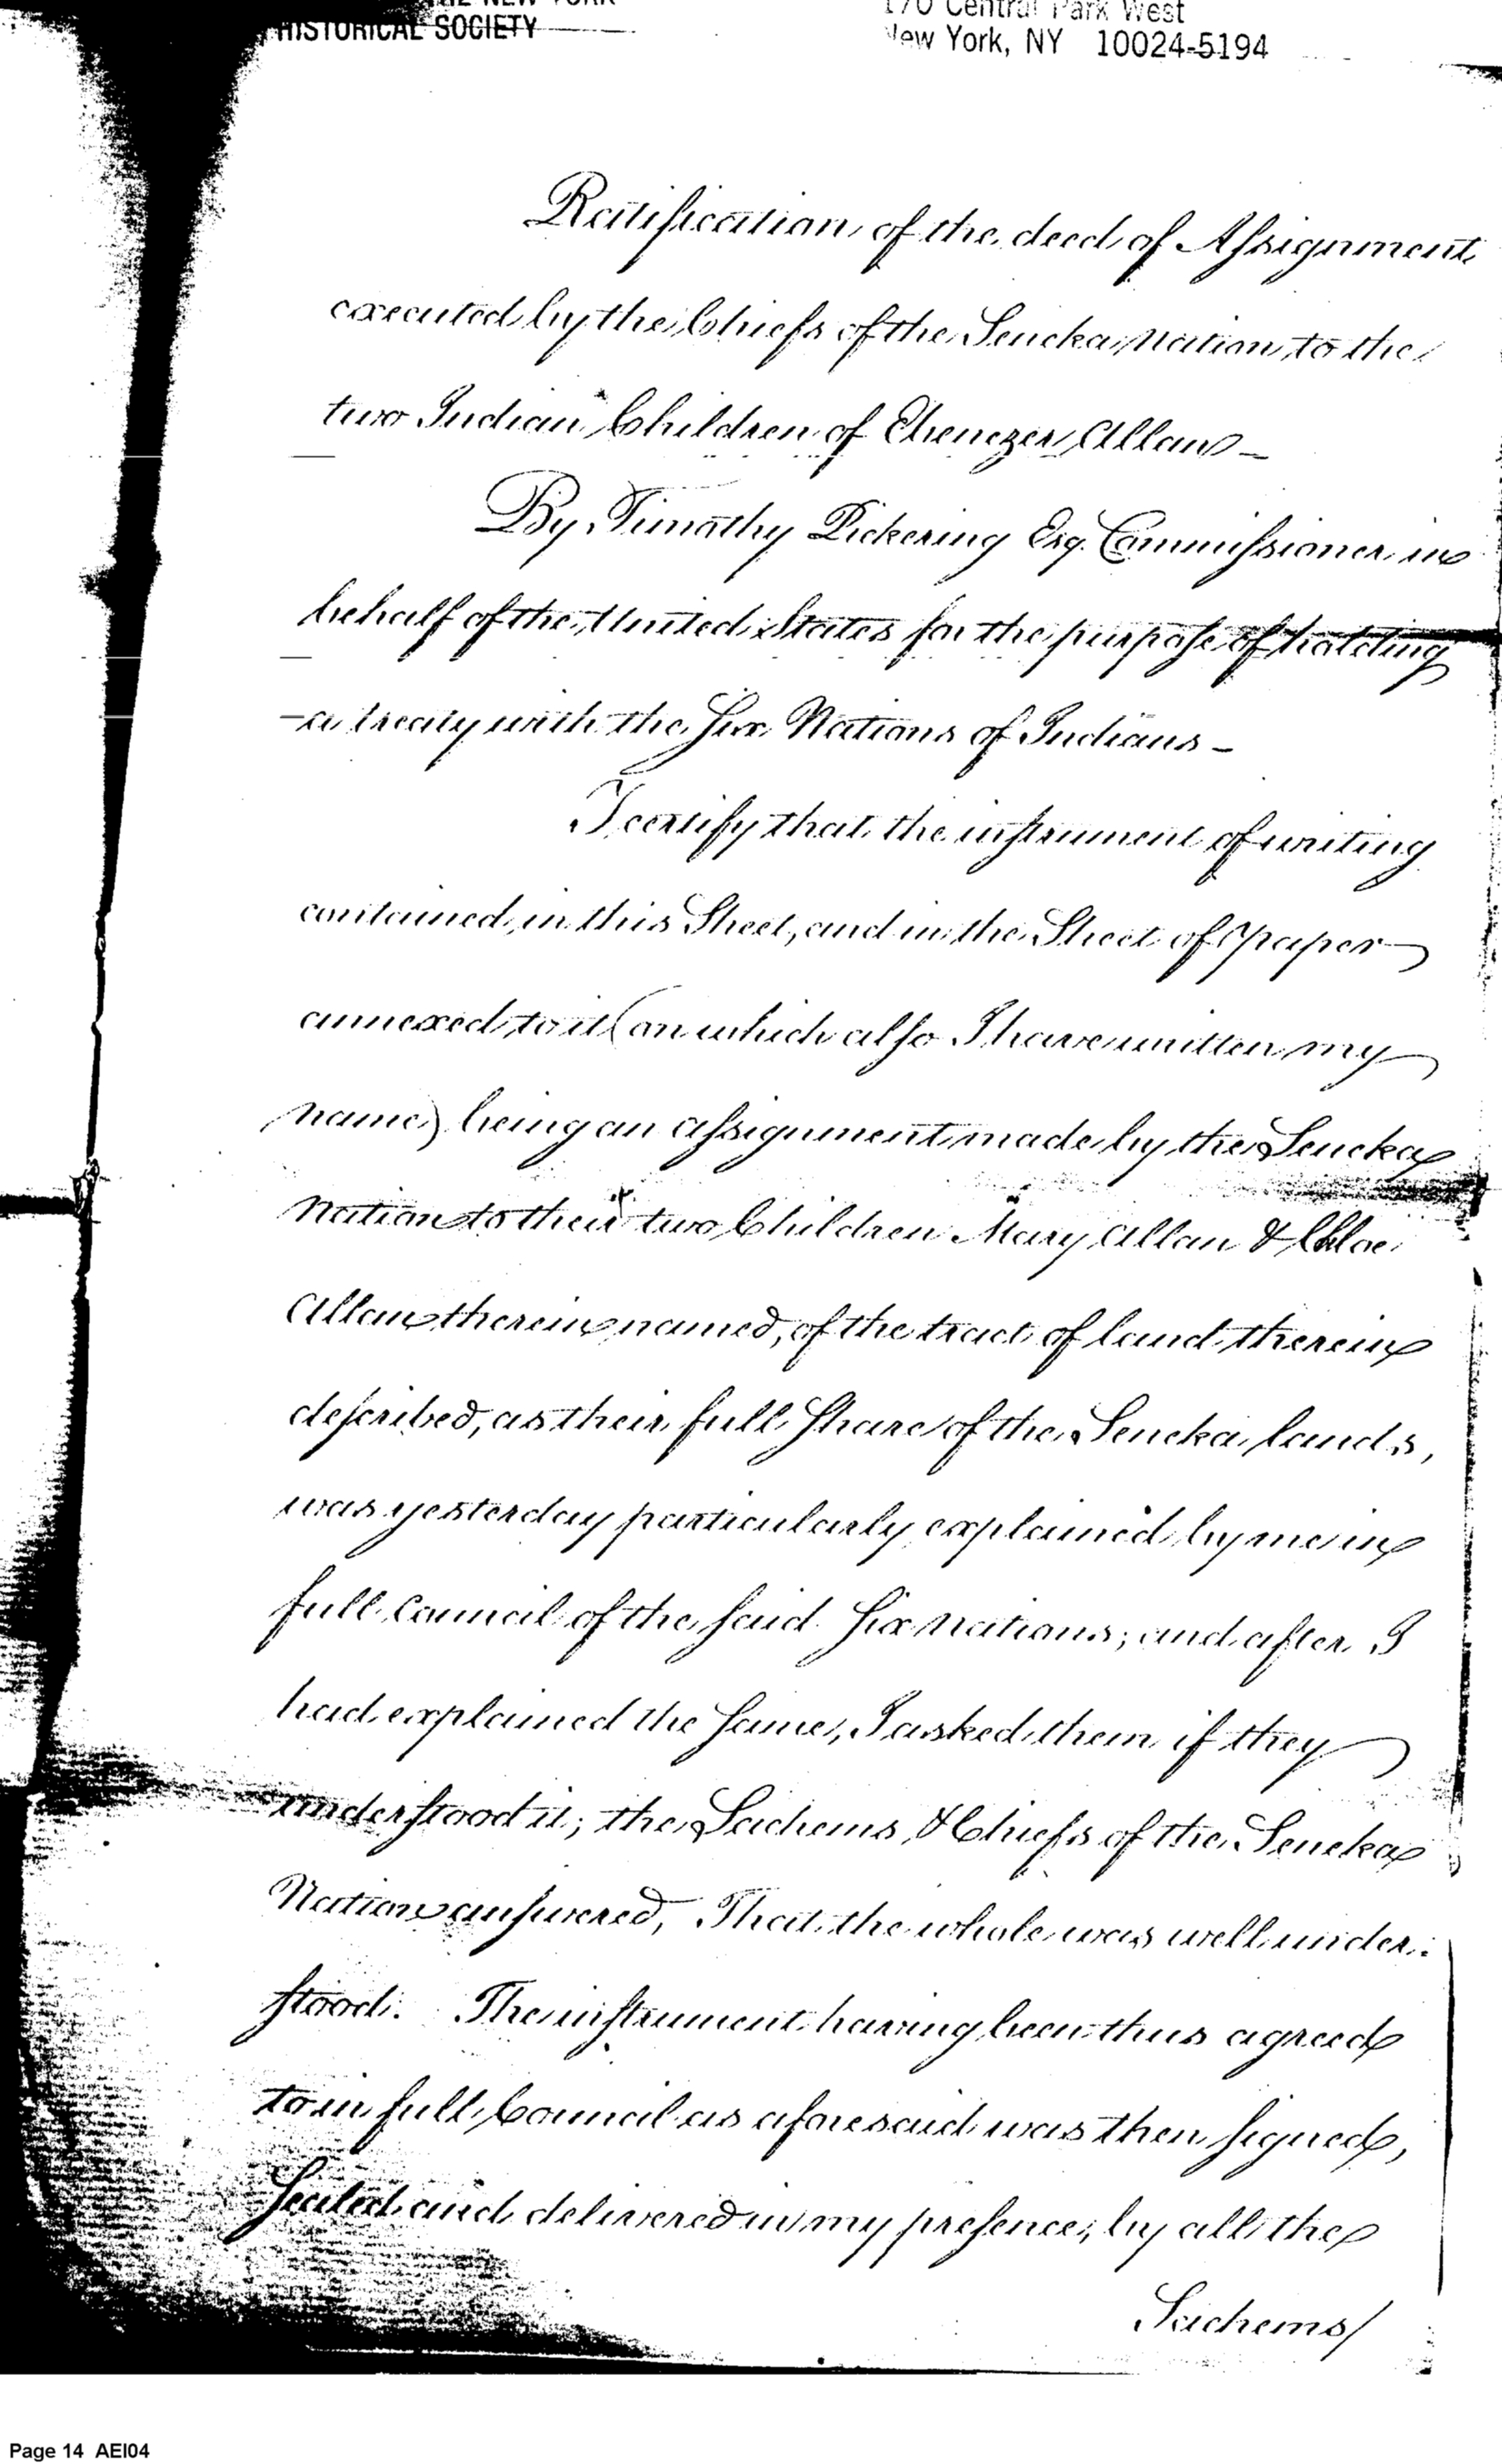 THE NEW YORK
HISTORICAL SOCIETY
170 Central Park West
New York, NY 10024-5194
Ratification of the deed of Assignment
executed by the Chiefs of the Seneka Nation to the
two Indian Children of Ebenezer Allan –
By Timothy Pickering Esq. Commissioner in
behalf of the United States for the purpose of holding
a treaty with the Six Nations of Indians –
I certify that the instrument of writing
contained in this Sheet, and in the Sheet of paper
annexed to it (on which also I have written my
name) being an assignment made by the Seneka
Nation to their two Children Mary Allan & Chloe
Allan therein named, of the tract of land therein
described, as their full Share of the Seneka lands,
was yesterday particularly explained by me in
full Council of the said Six Nations; and after I
had explained the same, I asked them if they
understood it; the Sachems & Chiefs of the Seneka
Nation answered, That the whole was well under:
stood. The instrument having been thus agreed
to in full Council as aforesaid was then signed,
Sealed and delivered in my presence, by all the
Sachems/
Page 14 AEI04